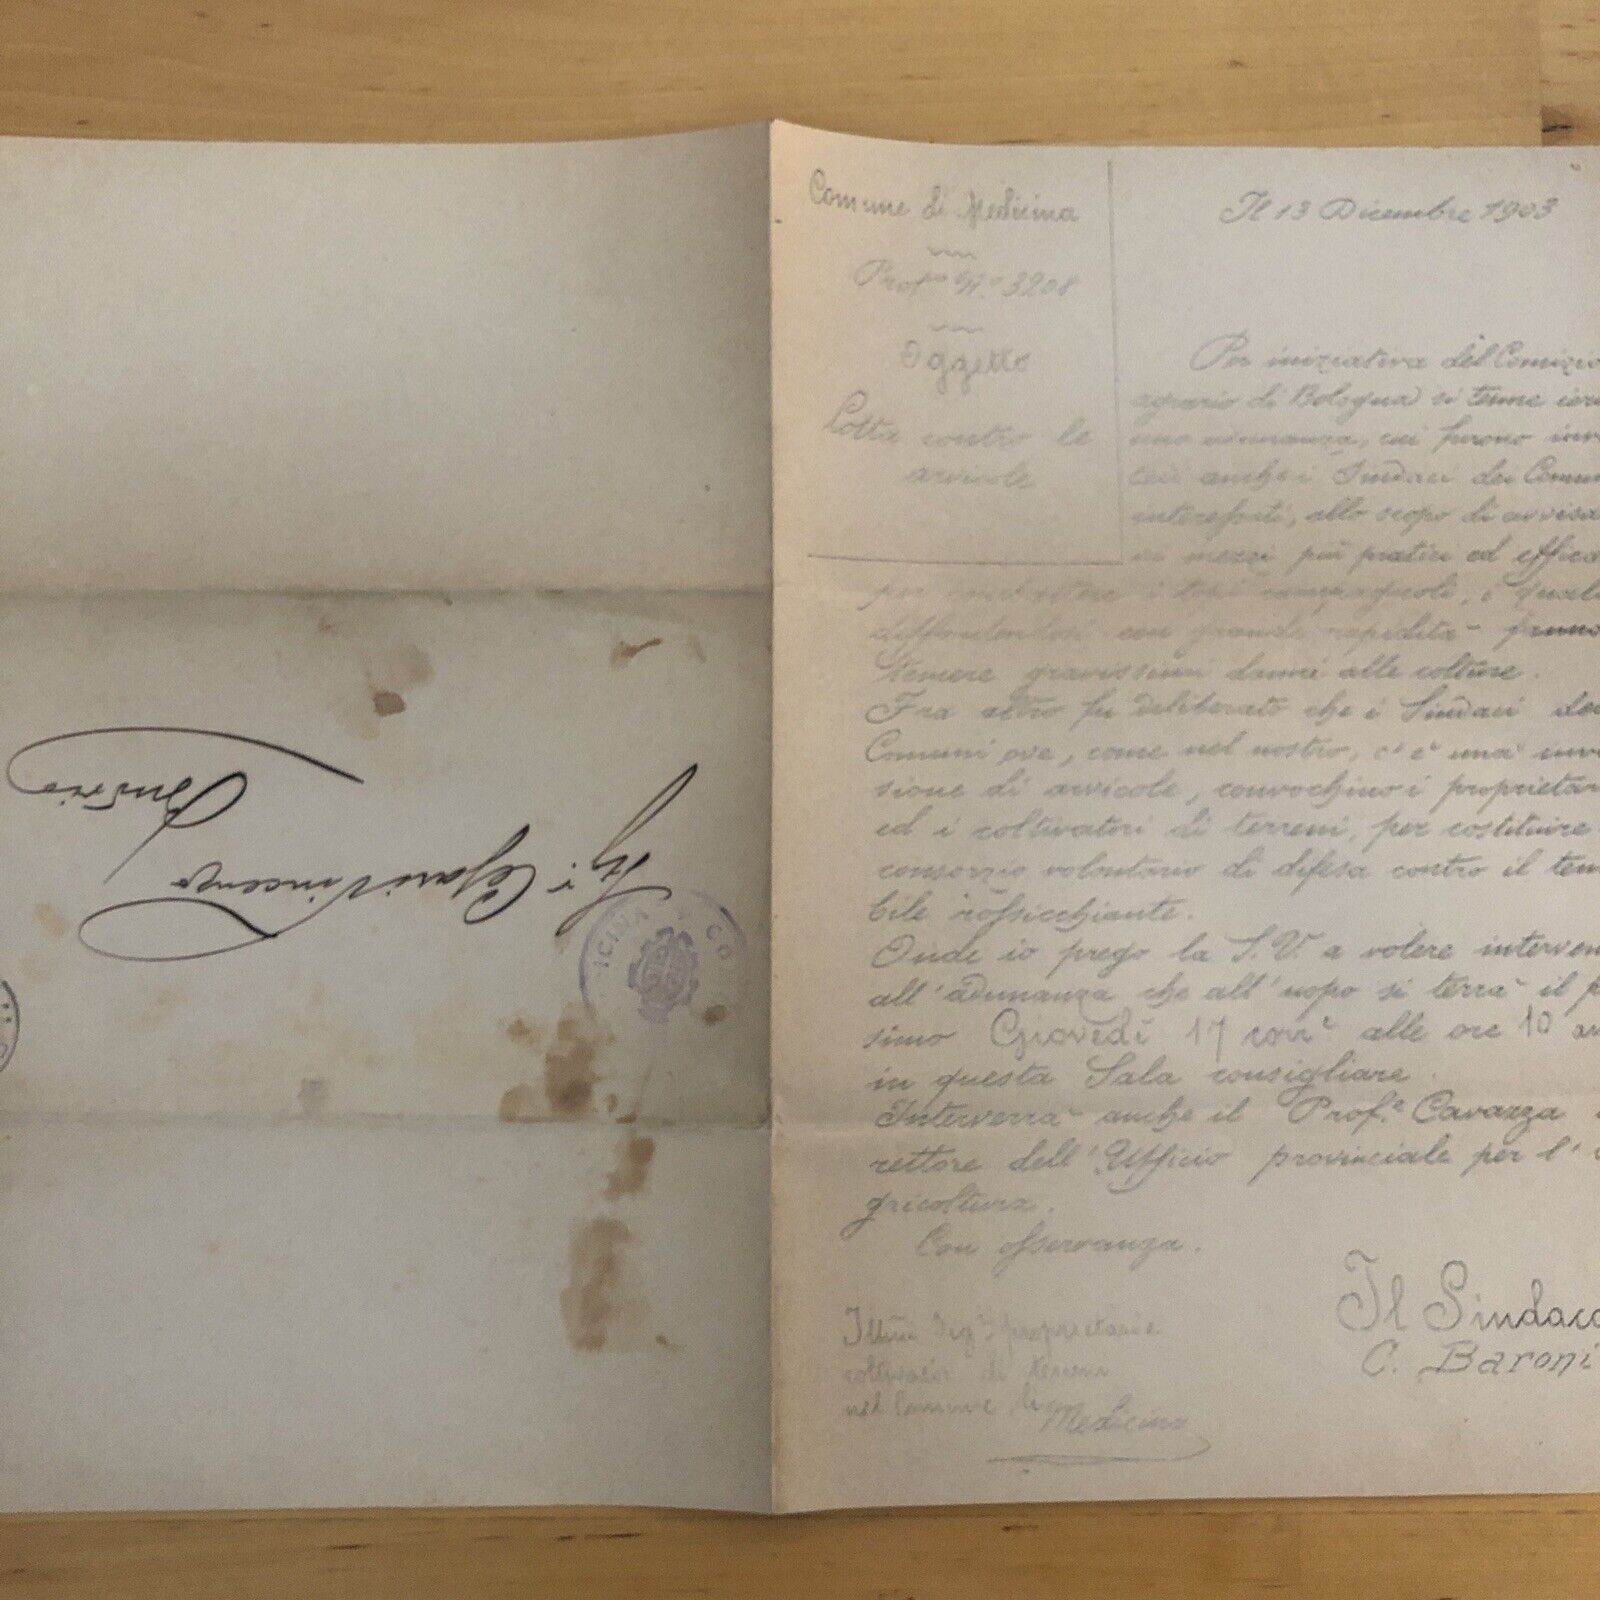 Comune di Medicina
Prot.llo N.o 3208
Oggetto
Lotta contro le
arvicole
Il 13 Dicembre 1903
Per iniziativa del Comizio
agrario di Bologna si tenne ieri
una adunanza, cui furono invi
tati anche i Sindaci dei Comun
interessati, allo scopo di avvisa
ai mezzi più pratici ed effica
per combattere i topi campagnoli, i quali
diffondendosi con grande rapidità fanno
temere gravissimi danni alle colture.
Fra altro fu deliberato che i Sindaci dei
Comuni ove, come nel nostro, c'è una inva
sione di arvicole, convochino i proprietari
ed i coltivatori di terreni, per costituire
consorzio volontario di difesa contro il temi
bile rossicchiante.
Onde io prego la S.V. a volere interveni
all'adunanza che all'uopo si terrà il p
simo Giovedì 17 corr.e alle ore 10 an
in questa Sala consigliare.
Interverrà anche il Prof.e Cavazza
rettore dell'Ufficio provinciale per l'
gricoltura.
Con osservanza.
Il Sindaco
C. Baroni
Ill.mi Sig.i proprietari e
coltivatori di terreni
nel Comune di
Medicina
Sig.r Cesari Vincenzo
ICINA CO